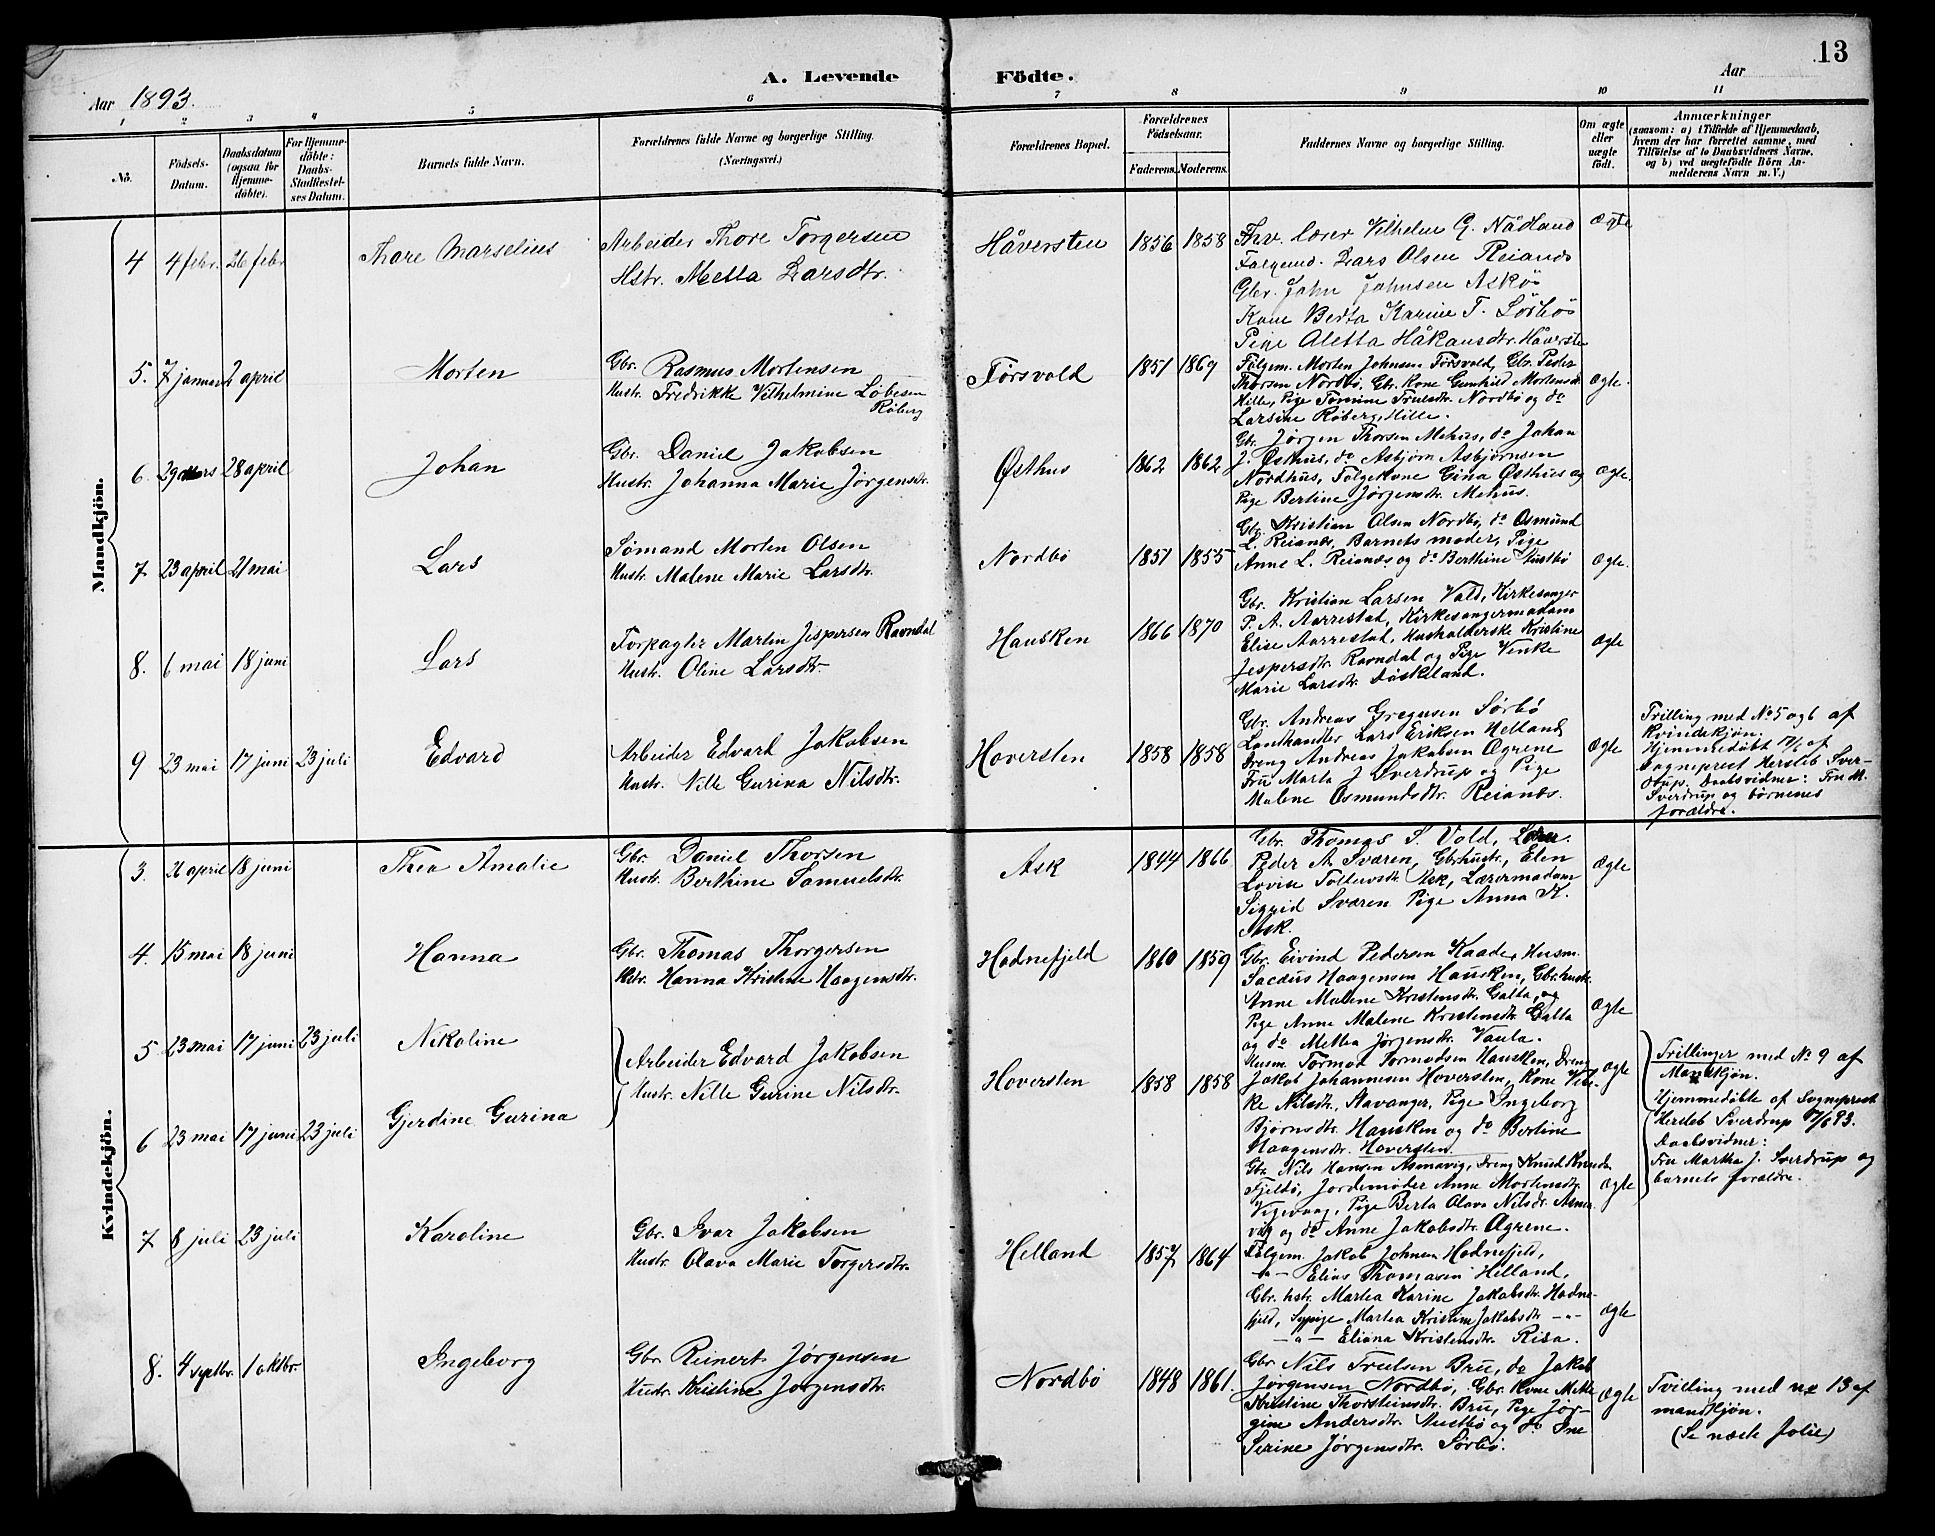 13
A. Levende Födte.
Aar 1893.
Aar
1 2 3 4 5 6 7 8 9 10 11
No.
Födsels-
Datum.
Daabsdatum
(ogsaa for
Hjemme-
döbte).
For Hjemme-
döbte:
Daabs-
Stadfæstel-
ses Datum.
Barnets fulde Navn.
Forældrenes fulde Navne og borgerlige Stilling.
(Næringsvei.)
Forældrenes Bopæl.
Forældrenes
Födselsaar.
Faderens. Moderens.
Faddernes Navne og borgerlige Stilling.
Om ægte
eller
uægte
födt.
Anmærkninger
(saasom: a) i Tilfælde af Hjemmedaab,
hvem der har forrettet samme, med
Tilföielse af to Daabsvidners Navne,
og b) ved uægtefödte Börn An-
melderens Navn m. V.)
Mandkjön.
4 4 febr. 26 febr Thore Marselius
Arbeider Thore Torgersen
Hstr. Metta Larsdtr.
Håversten 1856 1858
Fhv. Lærer Vilhelm G. Nådland
Følgemd. Lars Olsen Reianes
Gbr. John Johnsen Askö
Kone Berta Karine T. Sörbö
Pige Aletta Håkansdtr. Håverste
Ægte
5. 7 januar 2 april Morten
Gbr. Rasmus Mortensen
Hustr. Fredrikke Vilhelmine Løbesen
Røberg
Førsvold 1851 1869
Følgem. Morten Johnsen Førsvold, Gbr. Peder
Thorsen Nordbø, Gbr. kone Gunhild Mortensdtr.
Hille, Pige Tomine Trulsdtr. Nordbø og do
Larsine Røberg, Hille.
Ægte.
6 29 Mars 28 april Johan
Gbr. Daniel Jakobsen
Hustr. Johanna Marie Jörgensdtr.
Østhus 1862 1862
Gbr. Jørgen Thorsen Mehus, do Johan
J. Østhus, do Asbjørn Asbjørnsen
Nordhus, Følgekone Gina Østhus og
Pige Bertine Jørgensdtr. Mehus.
Ægte.
7 23 april 21 mai Lars
Sømand Morten Olsen
Hustr. Malene Marie Larsdtr.
Nordbø 1851 1855
Gbr. Kristian Olsen Nordbø, do Osmund
L. Reianes, Barnets moder, Pige
Anne L. Reianes og do Berthine Austbø
Ægte.
8. 6 mai 18 juni Lars
Forpagter Martin Jespersen Ravndal
Hustr. Oline Larsdtr.
Hausken 1866 1870
Gbr. Kristian Larsen Vald, Kirkesanger
P. A. Aarrestad, Kirkesangermadam
Elise Aarrestad, Husholderske Kristine
Jespersdtr. Ravndal og Pige Venke
Marie Larsdtr. Døskeland.
Ægte
9 23 mai 17 juni 23 juli Edvard
Arbeider Edvard Jakobsen
Hustr. Nille Gurina Nilsdtr.
Hoversten 1858 1858
Gbr. Andreas Gregusen Sørbø
Landhandler Lars Eriksen Helland
Dreng Andreas Jakobsen Øgrene
Fru Marta J. Sverdrup og Pige
Malene Osmundsdtr. Reianes.
Ægte
Trilling med No 5 og 6 af
Kvindekjøn.
Hjemmedøbt 17/6 af
Sogneprest Hersleb Sver-
drup. Daabsvidner: Fru M.
Sverdrup og børnenes
forældre.
Kvindekjön.
3. 21 april 18 juni Thea Amalie
Gbr. Daniel Thorsen
Hustr. Berthine Samuelsdtr.
Ask 1844 1866
Gbr. Thomas S. Vold, Lærer
Peder A. Sværen, Gbrhustr. Elen
Lovise Tollevsdtr. Ask, Lærermadam
Sigrid Sværen Pige Anna K.
Ask.
Ægte
4. 15 mai 18 juni Hanna
Gbr. Thomas Thorgersen
Hstr. Hanna Kristine Haagensdtr.
Hodnefjeld 1860 1859
Gbr. Eivind Pedersen Kaade, Husm.
Sacæus Haagensen Hausken, Gbr. hustr.
Anne Malene Kristensdtr. Galta, og
Pige Anne Malene Kristensdtr. Galta
og do Mettea Jørgensdtr. Vaula.
Ægte
5 23 mai 17 juni 23 juli Nikoline
Arbeider Edvard Jakobsen
Hustr. Nille Gurine Nilsdtr.
Hoversten 1858 1858
Husm. Tormod Tormodsen Hausken, Dreng
Jakob Johannesen Hoversten, Kone Vel-
ke Nilsdtr. Stavanger, Pige Ingeborg
Bjørnsdtr. Hausken og do Bertine
Haagensdtr. Hoversten
Ægte
Trillinger med No 9 af
Mandkjøn.
Hjemmedøbte af Sogneprest
Hersleb Sverdrup 17/6 93.
Daabsvidner:
Fru Martha J. Sverdrup og
barnets forældre.
6 23 mai 17 juni 23 juli Gjerdine Gurina
Gbr. Nils Hansen Asmavig, Dreng Knud Knudsn
Fjeldø, Jordemoder Anne Mortensdtr.
Vigevaag, Pige Berta Olava Nilsdr. Asma-
vig og do Anne Jakobsdtr. Øgrene.
Ægte
7 8 juli 23 juli Karoline
Gbr. Ivar Jakobsen
Hustr. Olava Marie Torgersdtr.
Helland 1857 1864
Følgem. Jakob Johnsen Hodnefjeld,
-"- Elias Thomasen Helland,
Gbr. hstr. Martea Karine Jakobsdtr. Hodne-
fjeld, Sypige Martea Kristine Jakobsdtr -"-
-"- Eliana Kristensdtr. Risa.
Ægte
8. 4 septbr. 1 oktbr. Ingeborg
Gbr. Reinert Jørgensen
Hustr. Kristine Jørgensdtr.
Nordbø 1848 1861.
Gbr. Nils Trulsen Bru, do Jakob
Jørgensen Nordbø, Gbr. Kone Mette
Kristine Thorsteinsdtr. Bru, Pige Jør-
gine Andersdtr. Austbø og do Ine
Serine Jørgensdtr. Sørbø.
Ægte
Tvilling med no 13 af
mandkjøn.
(Se næste folie)